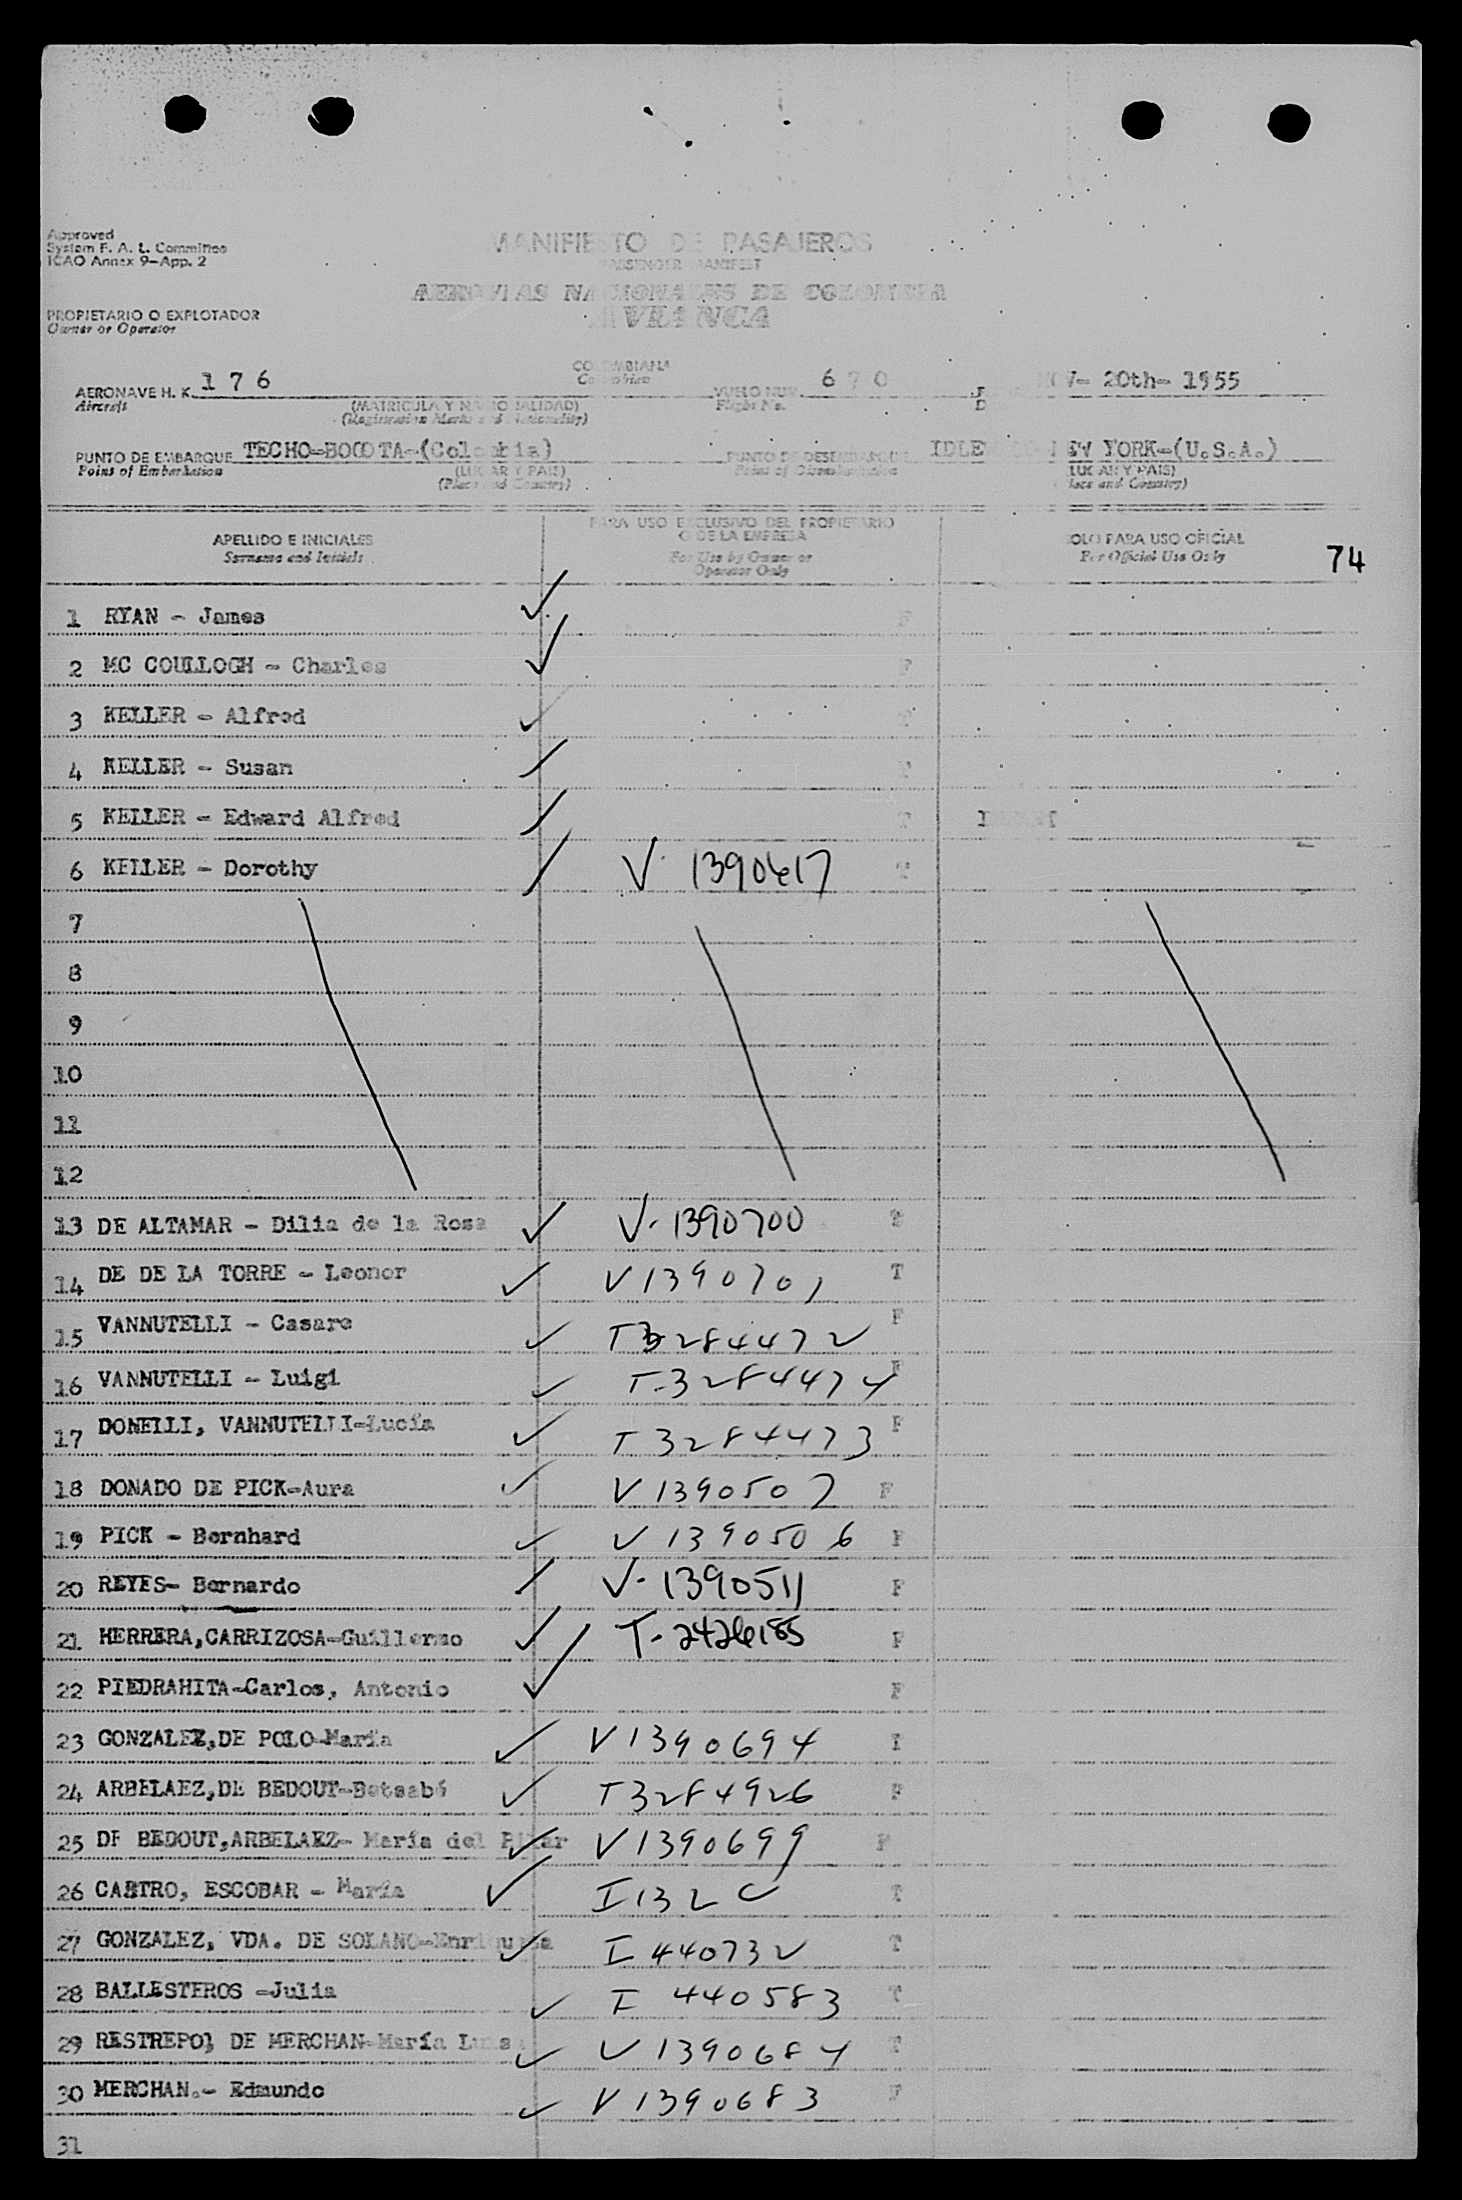 Approved
System F. A. L. Committee
ICAO Annex 9-App. 2
MANIFIESTO DE PASAJEROS
PASSENGER MANIFEST
AEROVIAS NACIONALES DE COLOMBIA
AVIANCA
PROPIETARIO O EXPLOTADOR
Owner or Operator
COLOMBIANA
Colombian
AERONAVE H. K. 176 VUELO NUM. 670 NOV- 20th- 1955
Aircraft (MATRICULA Y NACIONALIDAD) Flight No.
(Registration Marks and Nationality)
PUNTO DE EMBARQUE TECHO-BOGOTA-(Colombia) PUNTO DE DESEMBARQUE IDLE NEW YORK-(U.S.A.)
Point of Embarkation (LUGAR Y PAIS) Point of Disembarkation (LUGAR Y PAIS)
(Place and Country) (Place and Country)
APELLIDO E INICIALES PARA USO EXCLUSIVO DEL PROPIETARIO SOLO PARA USO OFICIAL
Surname and Initials O DE LA EMPRESA For Official Use Only 74
For Use by Owner or
Operator Only
1 RYAN - James F
2 MC COULLOGH - Charles F
3 KELLER - Alfred T
4 KELLER - Susan
5 KELLER - Edward Alfred T
6 KELLER - Dorothy V 1390617 T
7
8
9
10
11
12
13 DE ALTAMAR - Dilia de la Rosa V-1390700
14 DE DE LA TORRE - Leonor V1390701 T
15 VANNUTELLI - Casare T3284472 F
16 VANNUTELLI - Luigi T-3284474 F
17 DONELLI, VANNUTELLI-Lucía T3284473 F
18 DONADO DE PICK-Aura V1390507 F
19 PICK - Bernhard V 1390506 F
20 REYES- Bernardo V-1390511 F
21 HERRERA,CARRIZOSA-Guillermo T-2426185 F
22 PIEDRAHITA-Carlos, Antonio F
23 GONZALEZ,DE POLO-María V1390694 T
24 ARBELAEZ,DE BEDOUT-Betsabé T3284926 F
25 DE BEDOUT,ARBELAEZ- María del Pilar V1390699 F
26 CASTRO, ESCOBAR - María T
27 GONZALEZ, VDA. DE SOLANO-Enriqueta I440732 T
28 BALLESTEROS -Julia I 440583 T
29 RESTREPO, DE MERCHAN-María Luisa V1390684 T
30 MERCHAN.- Edmundo V1390683 F
31